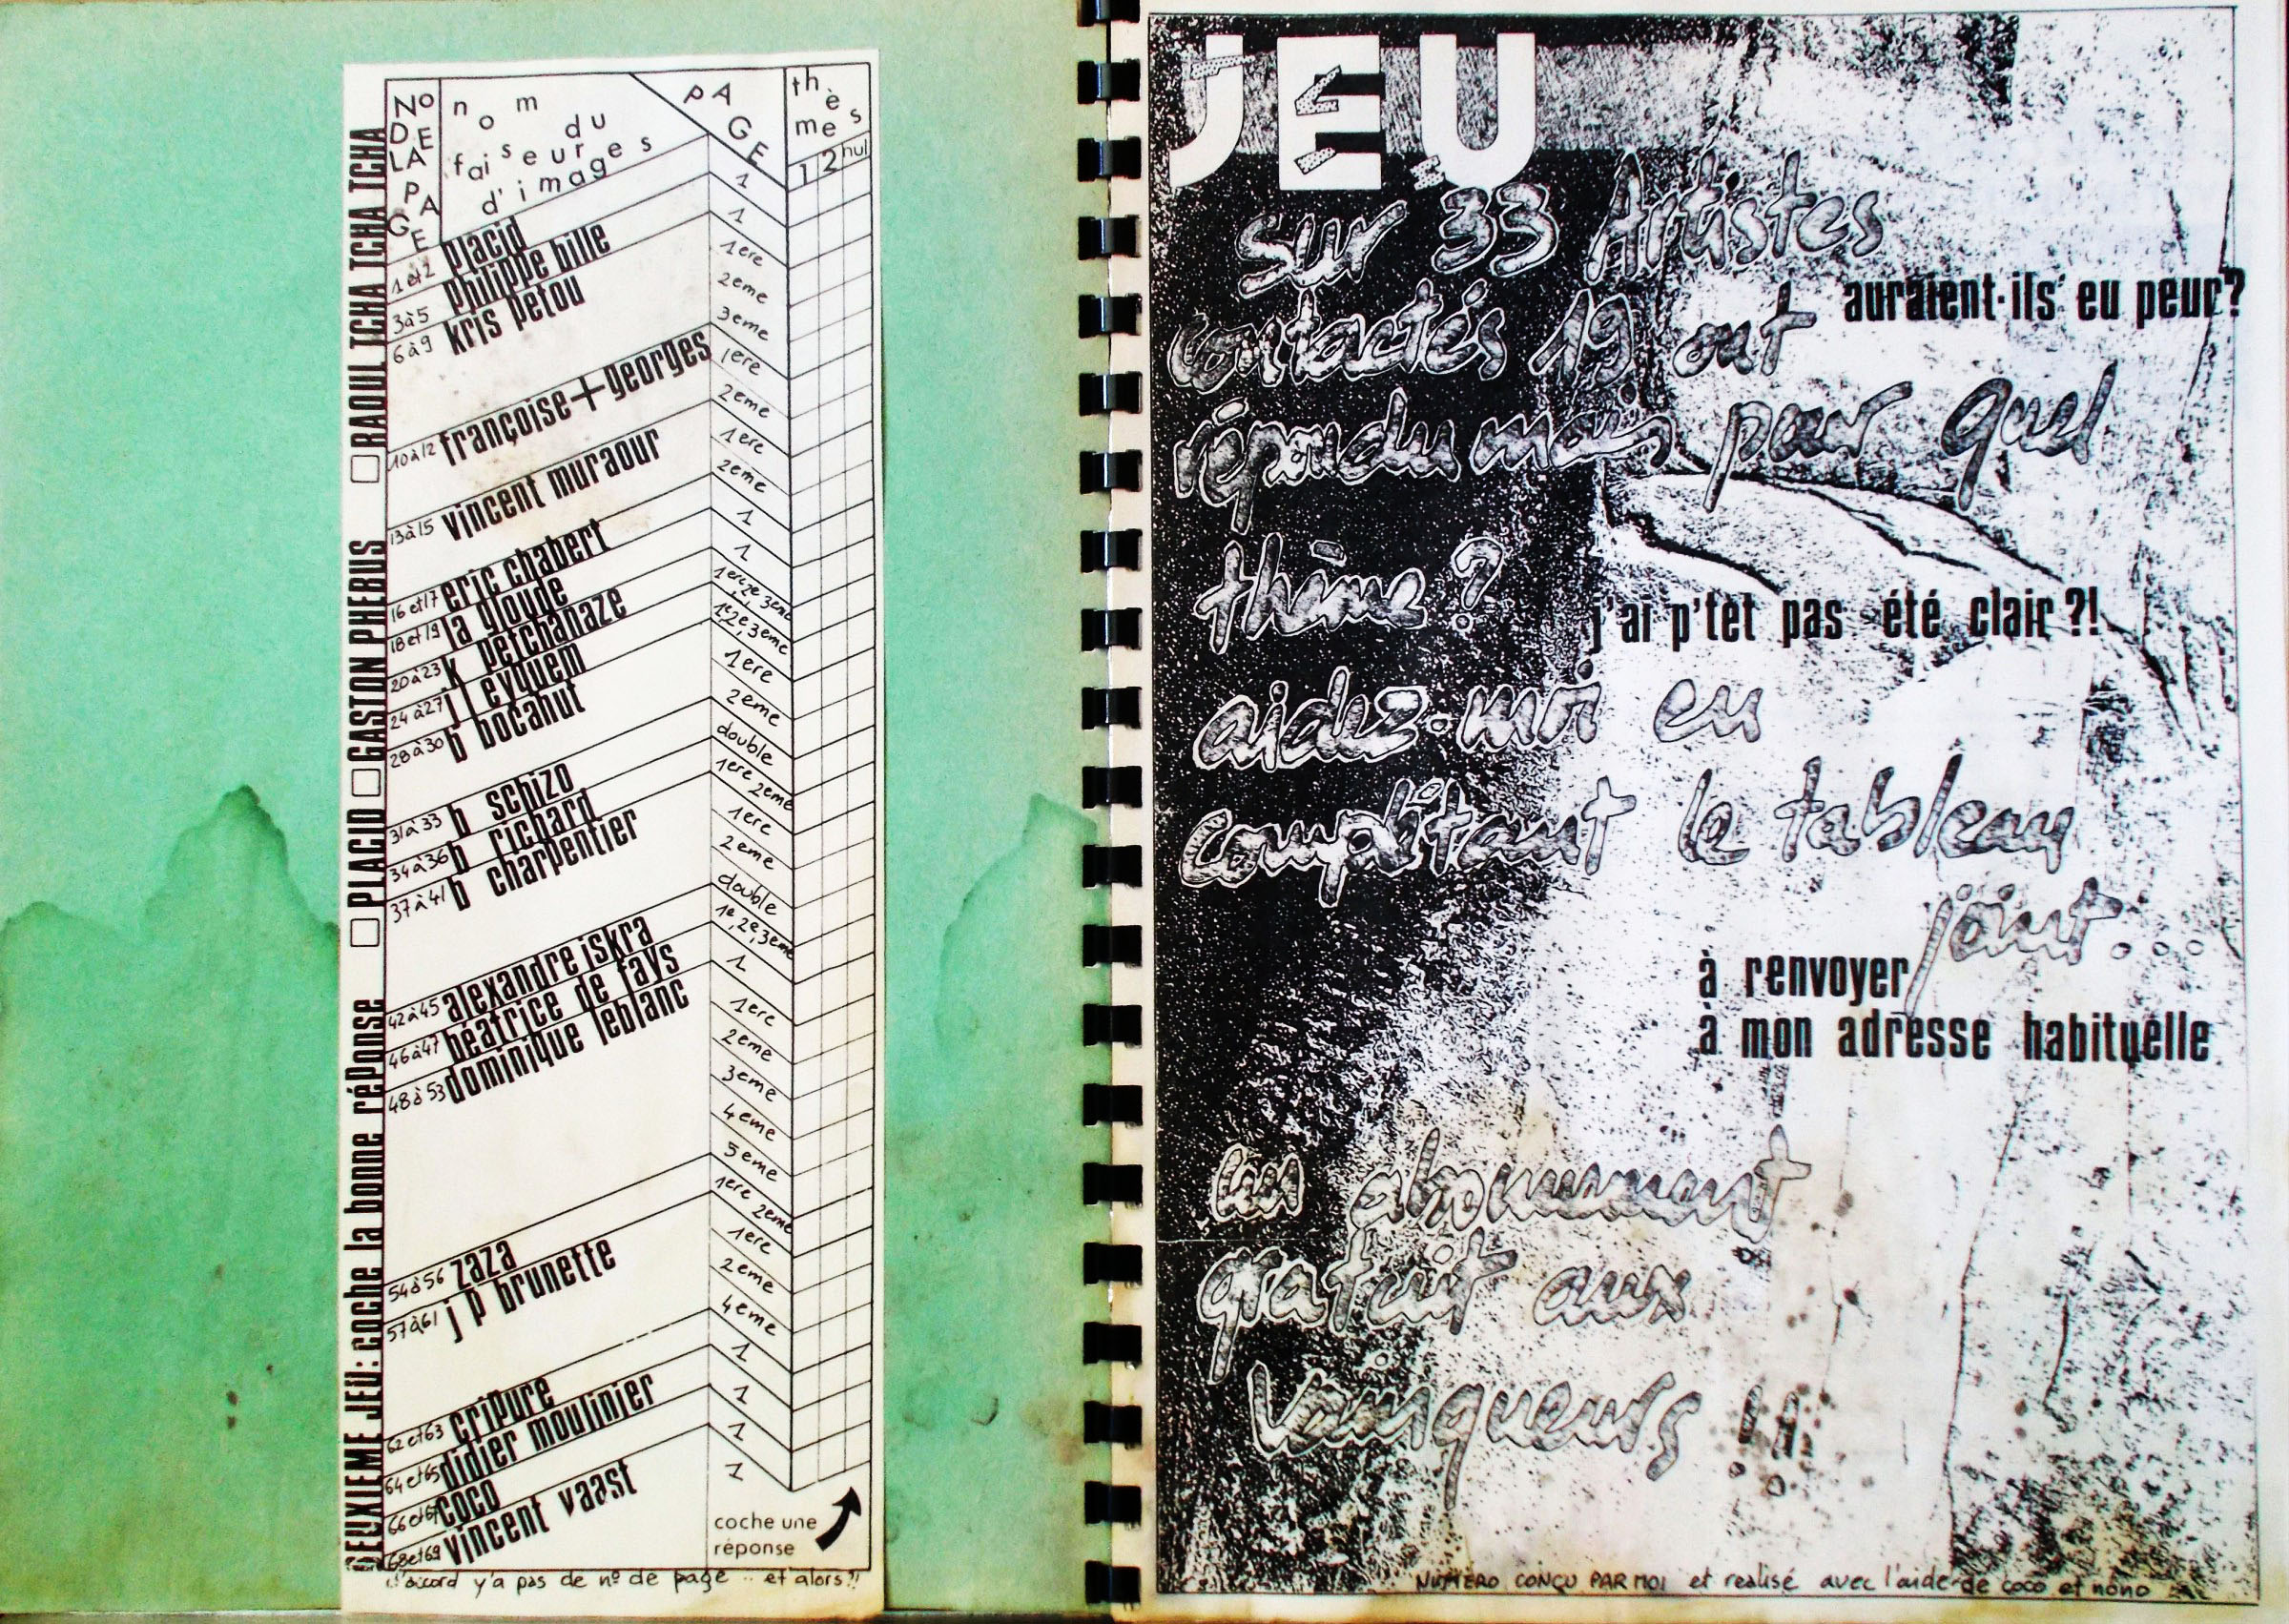 No DE LA PAGE
nom du faiseur d'images
PAGE
thèmes
1 2 nul
1 et 2 placid
3 à 5 philippe bille
6 à 9 kris petou
10 à 12 françoise+georges
13 à 15 vincent muraour
16 et 17 eric chabert
18 et 19 la gloude
20 à 23 k petchanaze
24 à 27 j l eyquem
28 à 30 b bocahut
31 à 33 b schizo
34 à 36 b richard
37 à 41 b charpentier
42 à 45 alexandre iskra
46 à 47 béatrice de fays
48 à 53 dominique leblanc
54 à 56 zaza
57 à 61 j p brunette
62 et 63 cripure
64 et 65 didier moulinier
66 et 67 coco
68 et 69 vincent vaast
1
1
1ere
2eme
3eme
1ere
2eme
1ere
2eme
1
1
1ere, 2e, 3eme
1e, 2e, 3eme
1ere
2eme
double
1ere 2eme
1ere
2eme
double
1e, 2e, 3eme
1
1ere
2eme
3eme
4eme
5eme
1ere 2eme
1ere
2eme
4eme
1
1
1
1
coche une
réponse
DEUXIEME JEU: coche la bonne réponse PLACID GASTON PHEBUS RAOUL TCHA TCHA TCHA
d'accord y'a pas de no de page .. et alors?!
JEU
Sur 33 Artistes
contactés 19 ont
auraient-ils eu peur?
répondu mais pour quel
thème ?
j'ai p'tet pas été clair ?!
aidez-moi en
complétant le tableau
joint...
à renvoyer
à mon adresse habituelle
un abonnement
gratuit aux
vainqueurs !!
NUMERO CONÇU PAR MOI et realisé avec l'aide de coco et nono